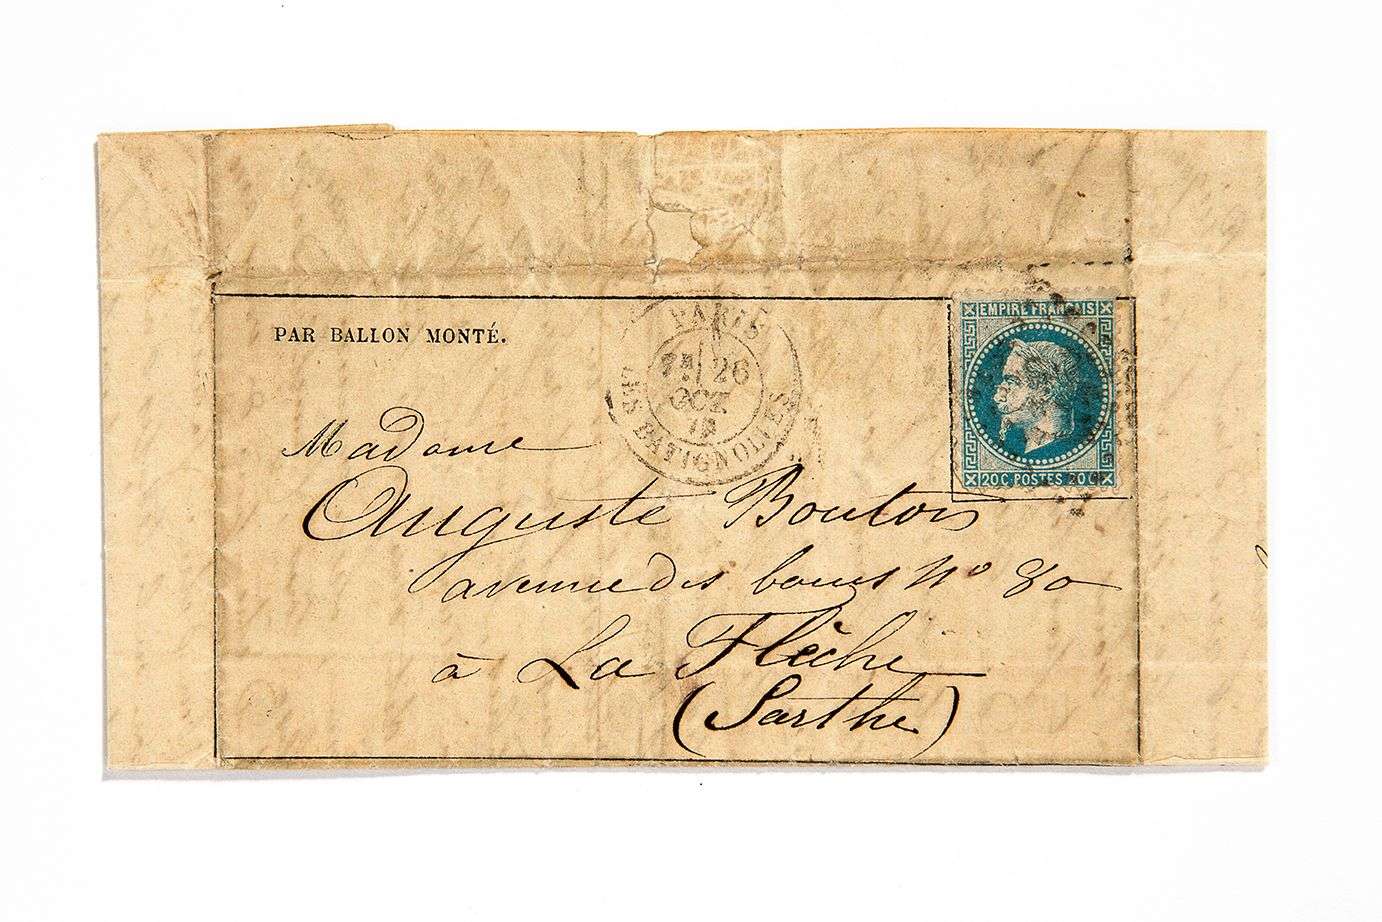 PAR BALLON MONTÉ.
PARIS
26
OCT.
LES BATIGNOLLES
EMPIRE FRANÇAIS
20 C. POSTES 20 C.
Madame
Auguste Boutois
avenue des bous N° 80
à La Flèche
(Sarthe)